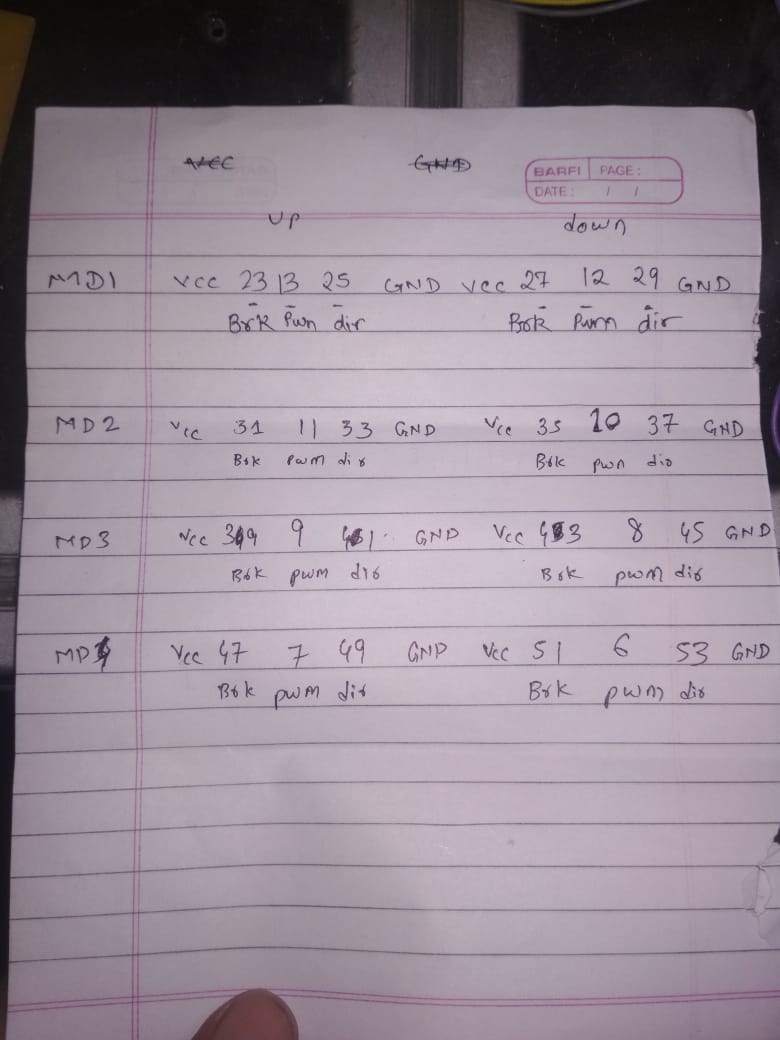 BARFI PAGE :
DATE : / /
UP down
MD1 VCC 23 13 25 GND VCC 27 12 29 GND
Brk Pwn dir Brk Pwm dir
MD2 Vcc 31 11 33 GND Vcc 35 10 37 GND
Brk PwM dir Brk pwn dir
MD3 Vcc 39 9 41 GND Vcc 43 8 45 GND
Brk pwm dir Brk pwm dir
MD4 Vcc 47 7 49 GND Vcc 51 6 53 GND
Brk pwm dir Brk pwm dir